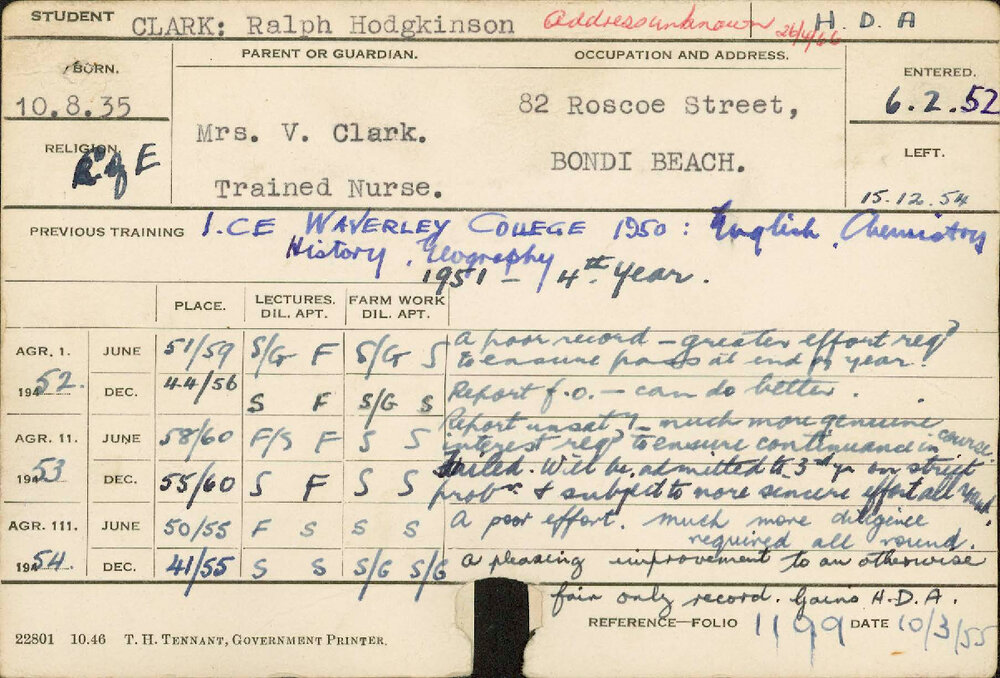 STUDENT CLARK: Ralph Hodgkinson Address unknown 26/4/66 H. D. A
BORN. PARENT OR GUARDIAN. OCCUPATION AND ADDRESS. ENTERED.
10.8.35 82 Roscoe Street, 6.2.52
Mrs. V. Clark.
RELIGION. C of E BONDI BEACH. LEFT.
Trained Nurse. 15.12.54
PREVIOUS TRAINING I.CE WAVERLEY COLLEGE 1950: English, Chemistry
History, Geography
1951 – 4th Year.
PLACE. LECTURES. DIL. APT. FARM WORK DIL. APT.
AGR. 1. JUNE 51/59 S/G F S/G S A poor record – greater effort reqd
to ensure pass at end of year.
1952. DEC. 44/56 S F S/G S Report f.o. – can do better.
AGR. 11. JUNE 58/60 F/S F S S Report unsaty – much more genuine
interest reqd to ensure continuance in course.
1953 DEC. 55/60 S F S S Failed. Will be admitted to 3rd yr on strict
probn & subject to more sincere effort all round.
AGR. 111. JUNE 50/55 F S S S A poor effort. Much more diligence
required all round.
1954. DEC. 41/55 S S S/G S/G A pleasing improvement to an otherwise
fair only record. Gains H.D.A.
REFERENCE—FOLIO 1199 DATE 10/3/55
22801 10.46 T. H. TENNANT, GOVERNMENT PRINTER.